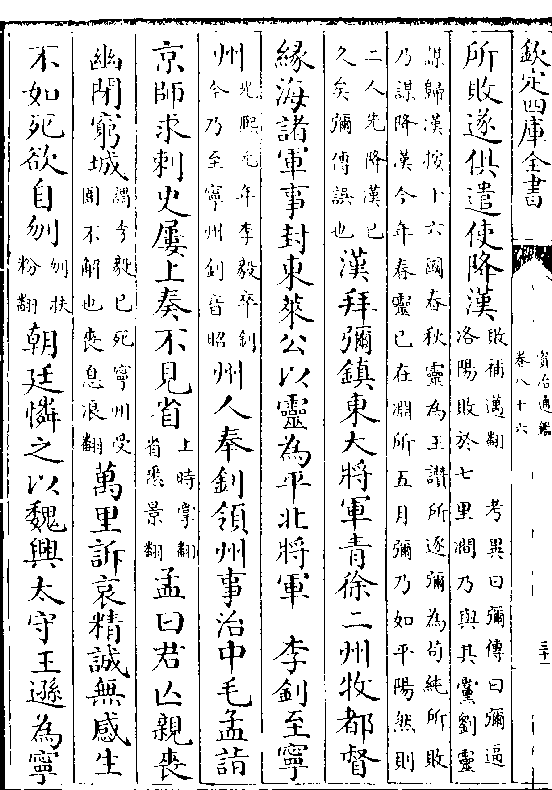 欽定四庫全書
資治通鑑
卷八十六
所敗遂俱遣使降漢敗補邁翻 考異曰彌傳曰彌逼洛陽敗於七里澗乃與其黨劉靈
謀歸漢按十六國春秋靈為王讚所逐彌為苟純所敗乃謀降漢今年春靈已在淵所五月彌乃如平陽然則
二人先降漢已久矣彌傳誤也漢拜彌鎮東大將軍青徐二州牧都督
緣海諸軍事封東萊公以靈為平北將軍 李釗至寧
州光熙元年李毅卒釗今乃至寧州釗音昭州人奉釗領州事治中毛孟詣
京師求刺史屢上奏不見省上時掌翻省悉景翻孟曰君亡親喪
幽閉窮城謂李毅已死寧州受圍不解也喪息浪翻萬里訴哀精誠無感生
不如死欲自刎刎扶粉翻朝廷憐之以魏興太守王遜為寧